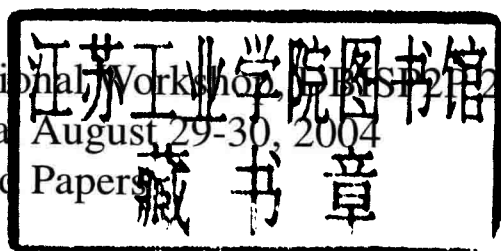 江苏工业学院图书馆
藏书章
Workshop,
August 29-30, 2004
Papers